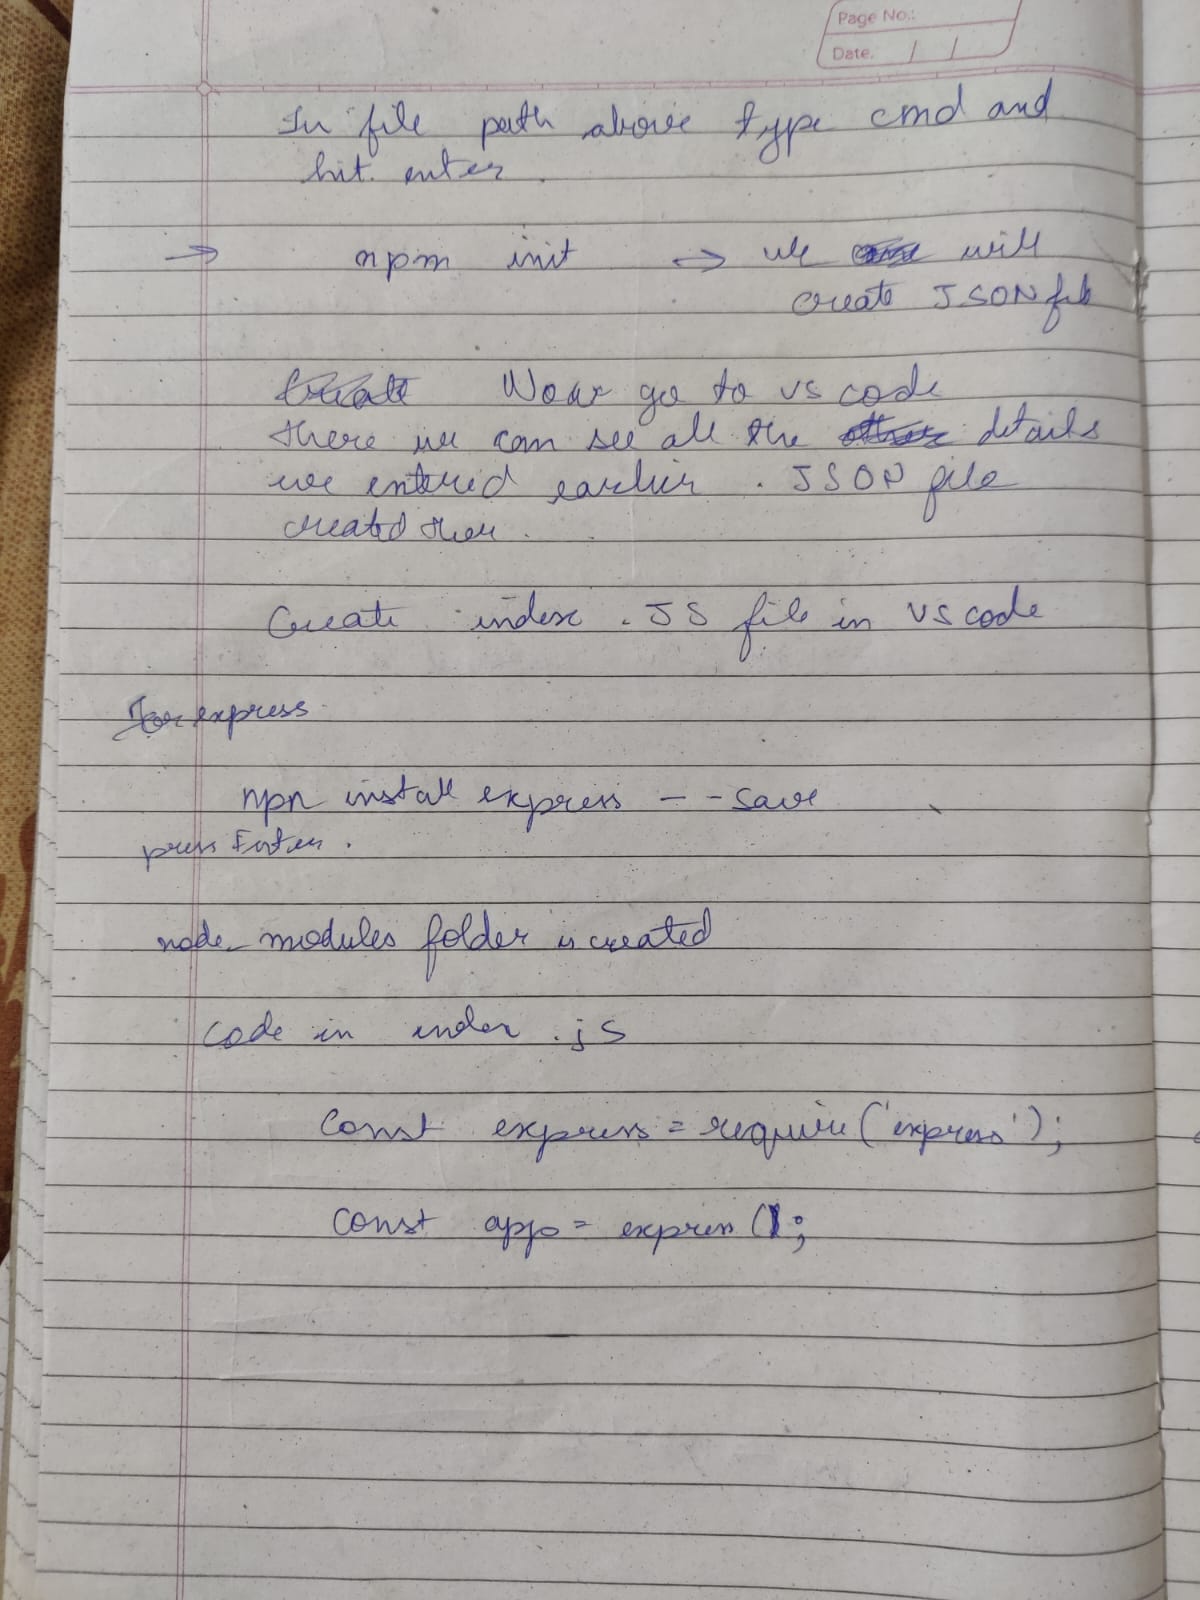 Page No.:
Date. / /
In file path above type cmd and
hit enter.
→ npm init → we will
create JSON file
Create Now go to vs code
there we can see all the other details
we entered earlier. JSON file
created there.
Create index.JS file in VS code
For express
npn install express --save
press Enter.
node_modules folder is created
code in index.js
const express = require('express');
const app = express();